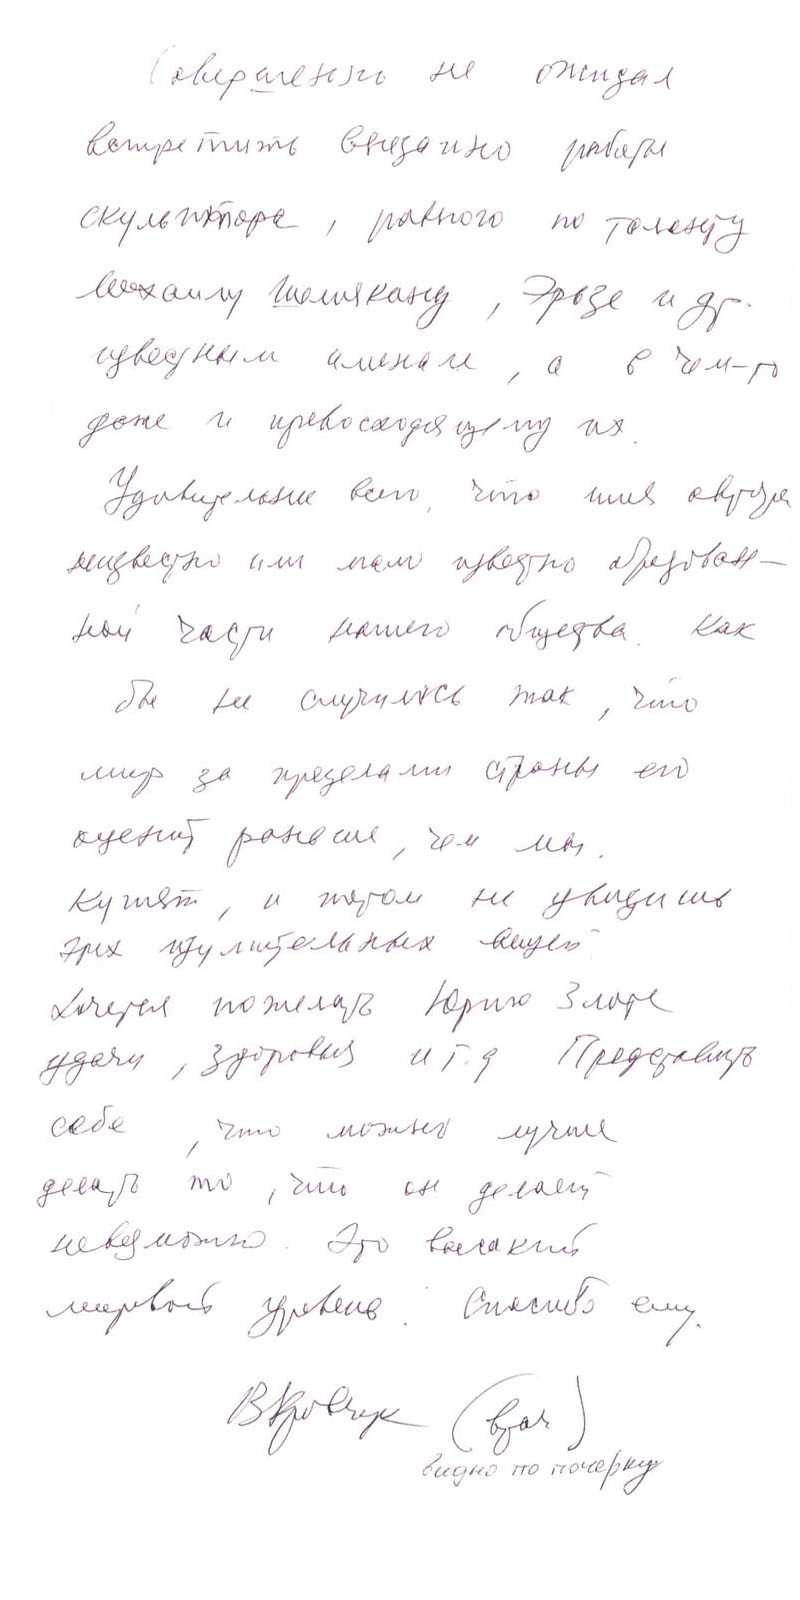 Совершенно не ожидал
встретить внезапно работы
скульптора, равного по таланту
Михаилу Шемякину, Эрьзе и др.
известным именам, а в чем-то
даже и превосходящему их.
Удивительнее всего, что имя автора
неизвестно или мало известно образован-
ной части нашего общества. Как
бы не случилось так, что
мир за пределами страны его
оценит раньше, чем мы.
Купят, и потом не увидишь
этих изумительных вещей.
Хочется пожелать Юрию Злоте
удачи, здоровья и т.д. Представить
себе, что можно лучше
делать то, что он делает
невозможно. Это высокий
мировой уровень. Спасибо ему.
В Кравчук (врач)
видно по почерку